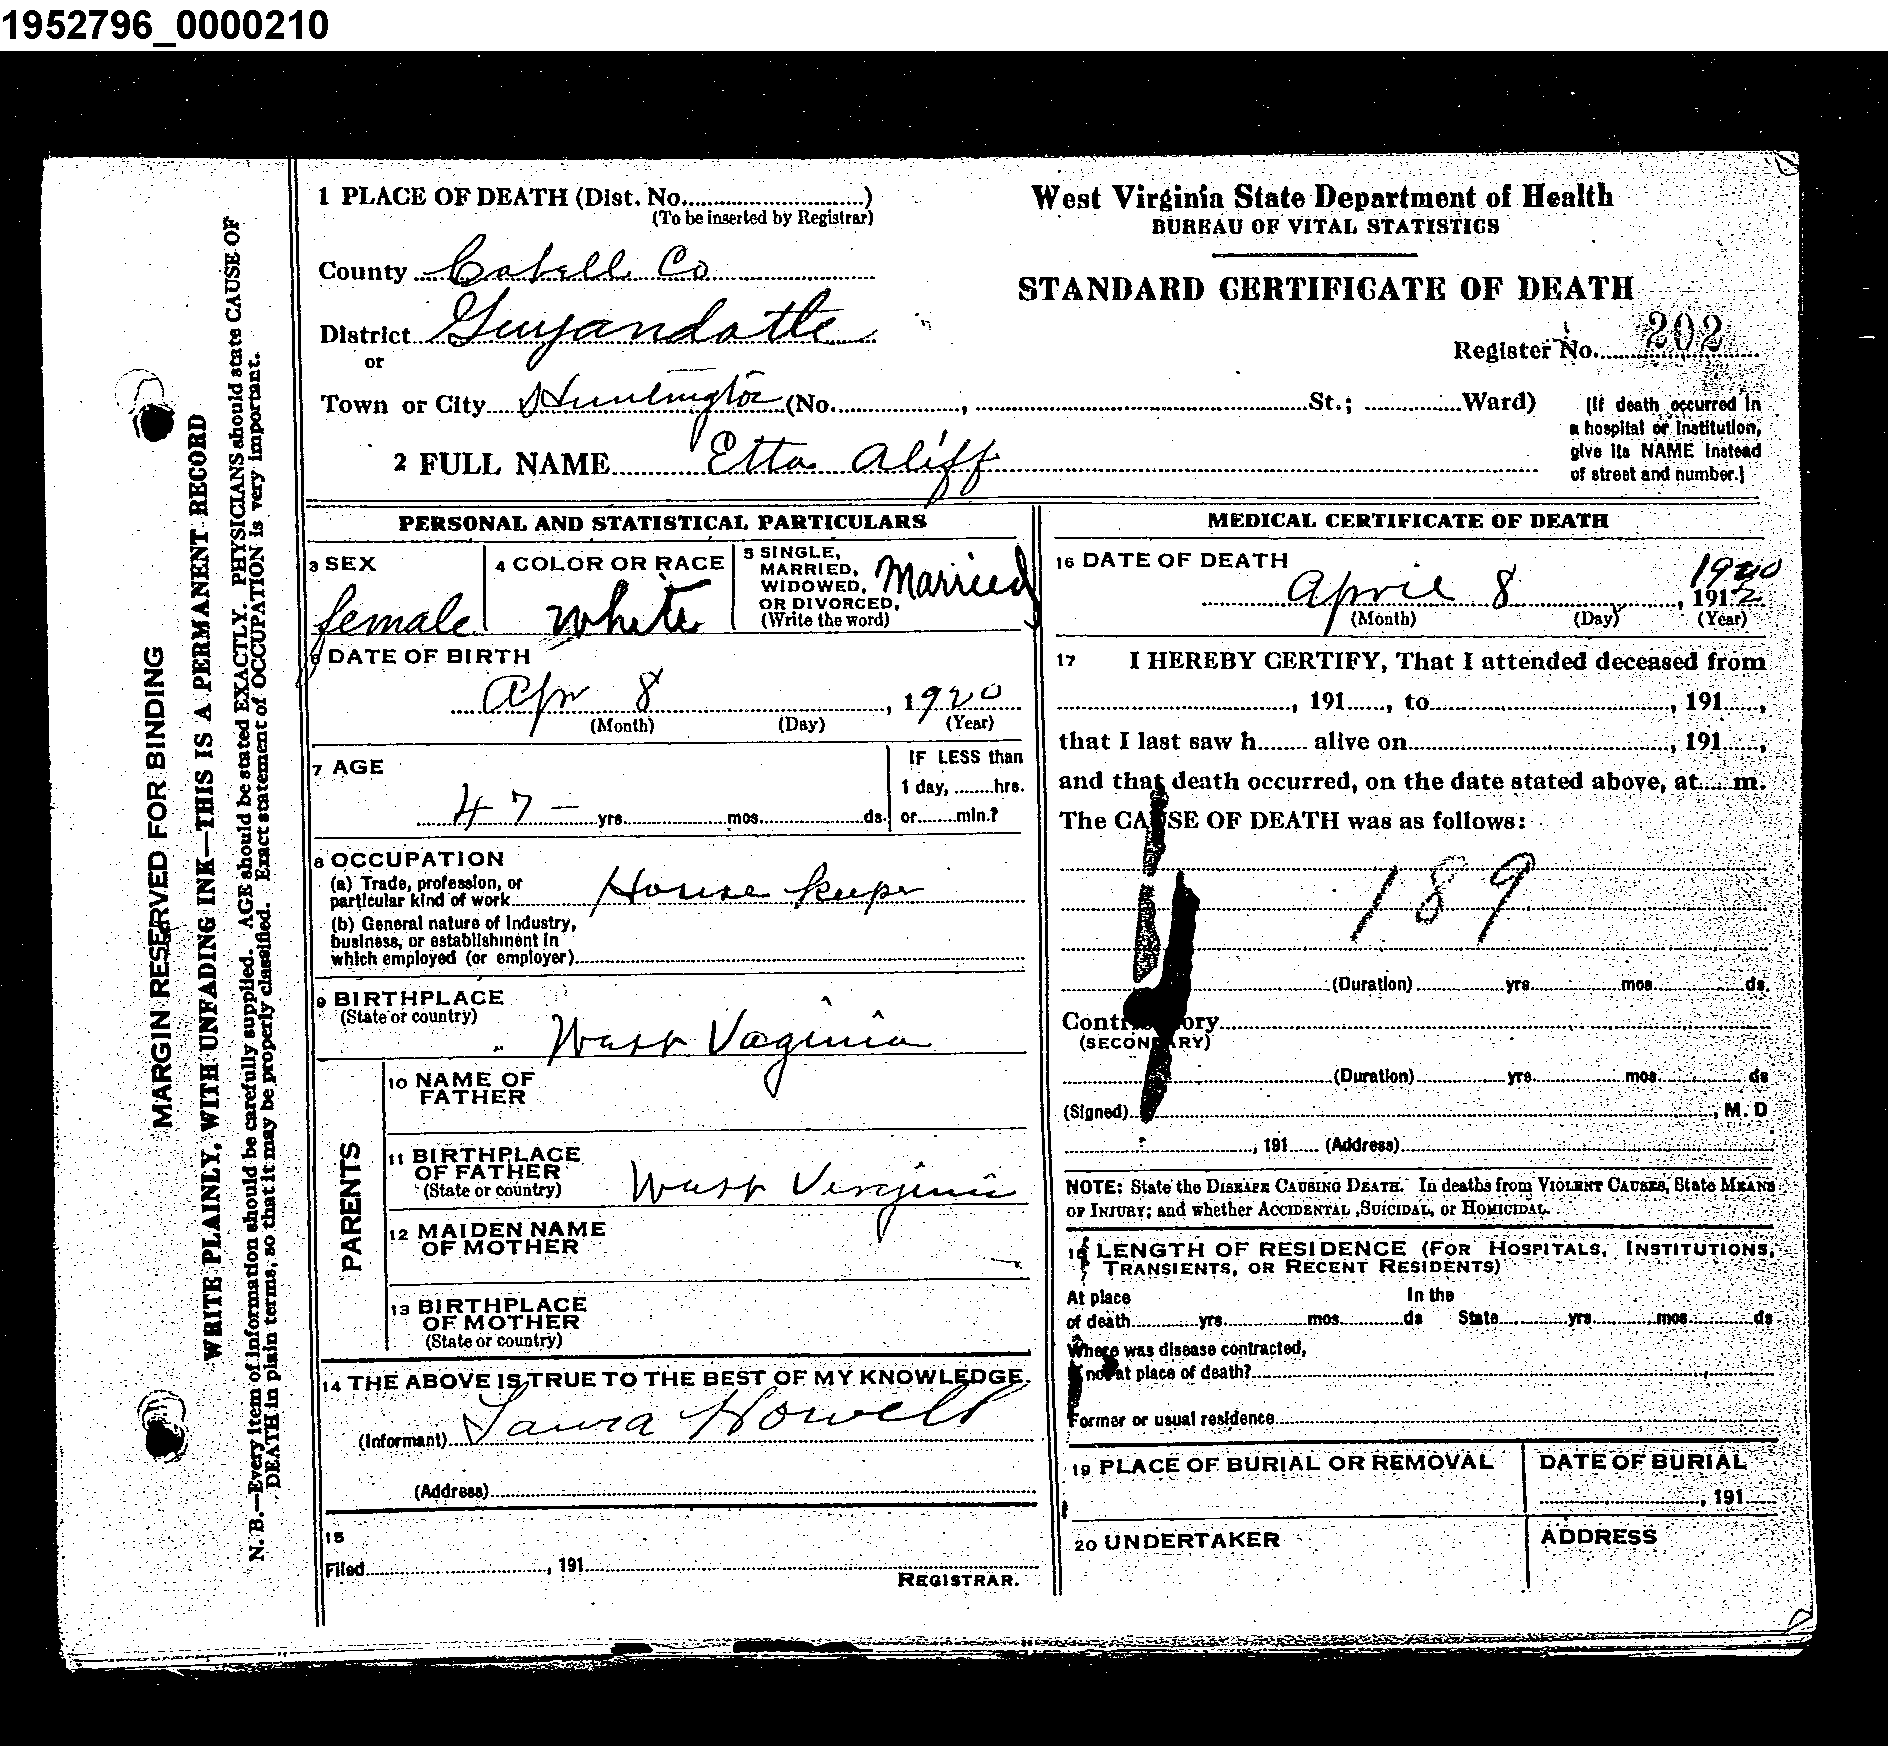 1952796_0000210
1 PLACE OF DEATH (Dist. No. )
(To be inserted by Registrar)
County Cabell Co
District Guyandotte
or
Town or City Huntington (No. , St.; Ward)
2 FULL NAME Etta Aliff
West Virginia State Department of Health
BUREAU OF VITAL STATISTICS
STANDARD CERTIFICATE OF DEATH
Register No. 202
[If death occurred in
a hospital or institution,
give its NAME instead
of street and number.]
MARGIN RESERVED FOR BINDING
WRITE PLAINLY, WITH UNFADING INK—THIS IS A PERMANENT RECORD
N. B.—Every item of information should be carefully supplied. AGE should be stated EXACTLY. PHYSICIANS should state CAUSE OF
DEATH in plain terms, so that it may be properly classified. Exact statement of OCCUPATION is very important.
PERSONAL AND STATISTICAL PARTICULARS
3 SEX
female
4 COLOR OR RACE
white
5 SINGLE,
MARRIED,
WIDOWED,
OR DIVORCED,
(Write the word)
Married
6 DATE OF BIRTH
Apr 8 , 1920
(Month) (Day) (Year)
7 AGE
47 — yrs. mos. ds.
IF LESS than
1 day, hrs.
or min.?
8 OCCUPATION
(a) Trade, profession, or
particular kind of work House keeper
(b) General nature of industry,
business, or establishment in
which employed (or employer)
9 BIRTHPLACE
(State or country)
West Vaginia
PARENTS
10 NAME OF
FATHER
11 BIRTHPLACE
OF FATHER
(State or country) West Virginia
12 MAIDEN NAME
OF MOTHER
13 BIRTHPLACE
OF MOTHER
(State or country)
14 THE ABOVE IS TRUE TO THE BEST OF MY KNOWLEDGE.
(Informant) Laura Howell
(Address)
15
Filed , 191
REGISTRAR.
MEDICAL CERTIFICATE OF DEATH
16 DATE OF DEATH
1920
April 8 , 1912
(Month) (Day) (Year)
17 I HEREBY CERTIFY, That I attended deceased from
, 191 , to , 191 ,
that I last saw h alive on , 191 ,
and that death occurred, on the date stated above, at m.
The CAUSE OF DEATH was as follows:
189
(Duration) yrs. mos. ds.
Contributory
(SECONDARY)
(Duration) yrs. mos. ds
(Signed) , M. D
, 191 (Address)
NOTE: State the DISEASE CAUSING DEATH. In deaths from VIOLENT CAUSES, State MEANS
OF INJURY; and whether ACCIDENTAL, SUICIDAL, or HOMICIDAL.
18 LENGTH OF RESIDENCE (FOR HOSPITALS, INSTITUTIONS,
TRANSIENTS, OR RECENT RESIDENTS)
At place In the
of death yrs. mos. ds State yrs. mos. ds.
Where was disease contracted,
if not at place of death?
Former or usual residence
19 PLACE OF BURIAL OR REMOVAL
DATE OF BURIAL
, 191
20 UNDERTAKER
ADDRESS